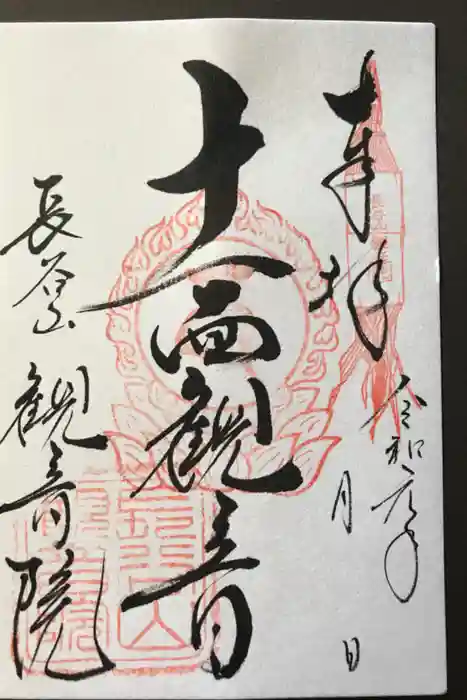 奉拝
令和元年
月 日
十一面観音
長谷山
観音院